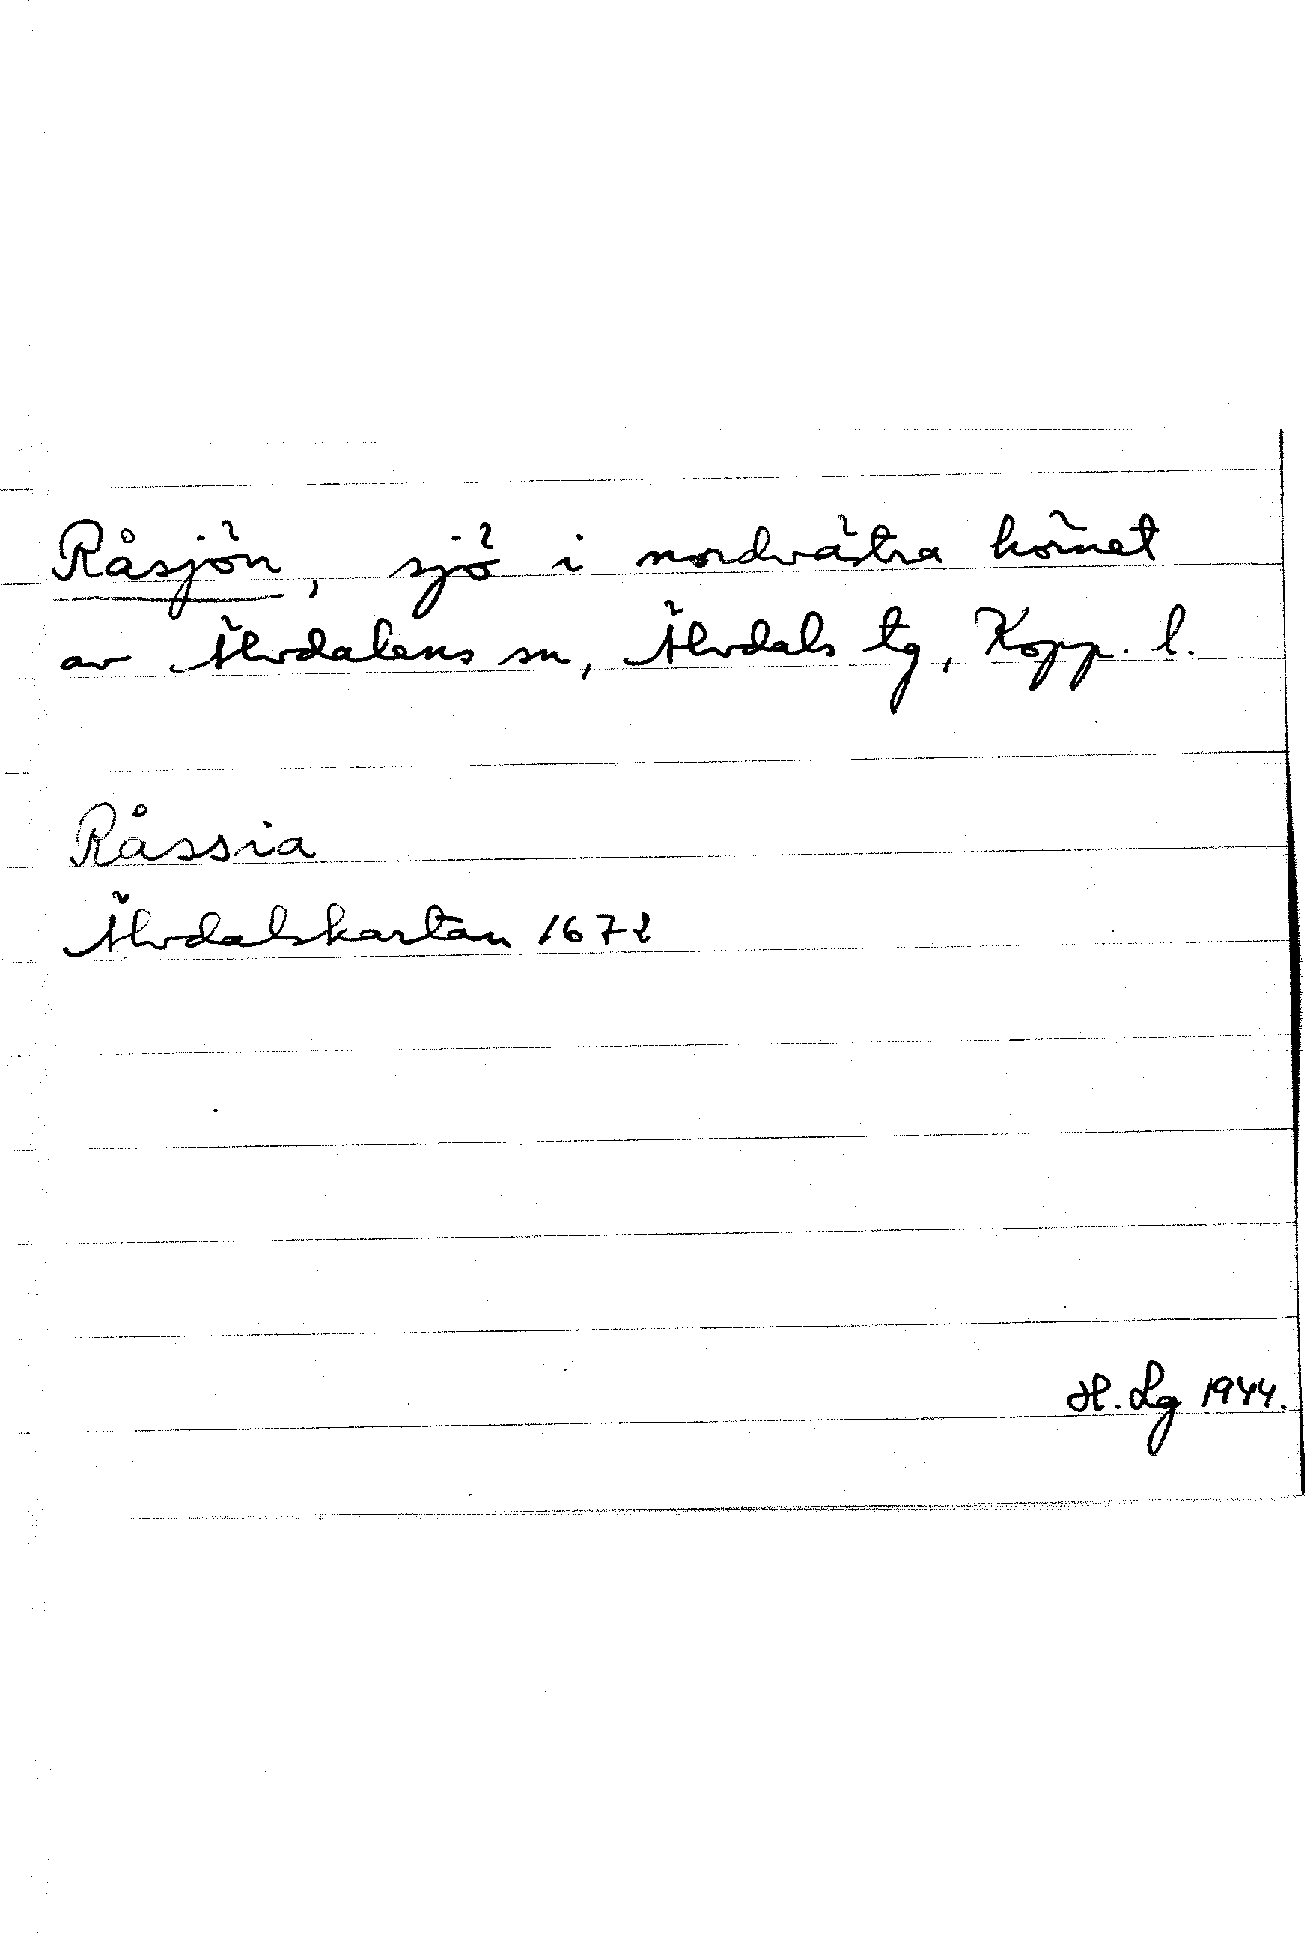 Råsjön, sjö i nordvästra hörnet
av Älvdalens sn, Älvdals tg, Kopp. l.
Råssia
Älvdalskartan 1672
H. Lg 1944.